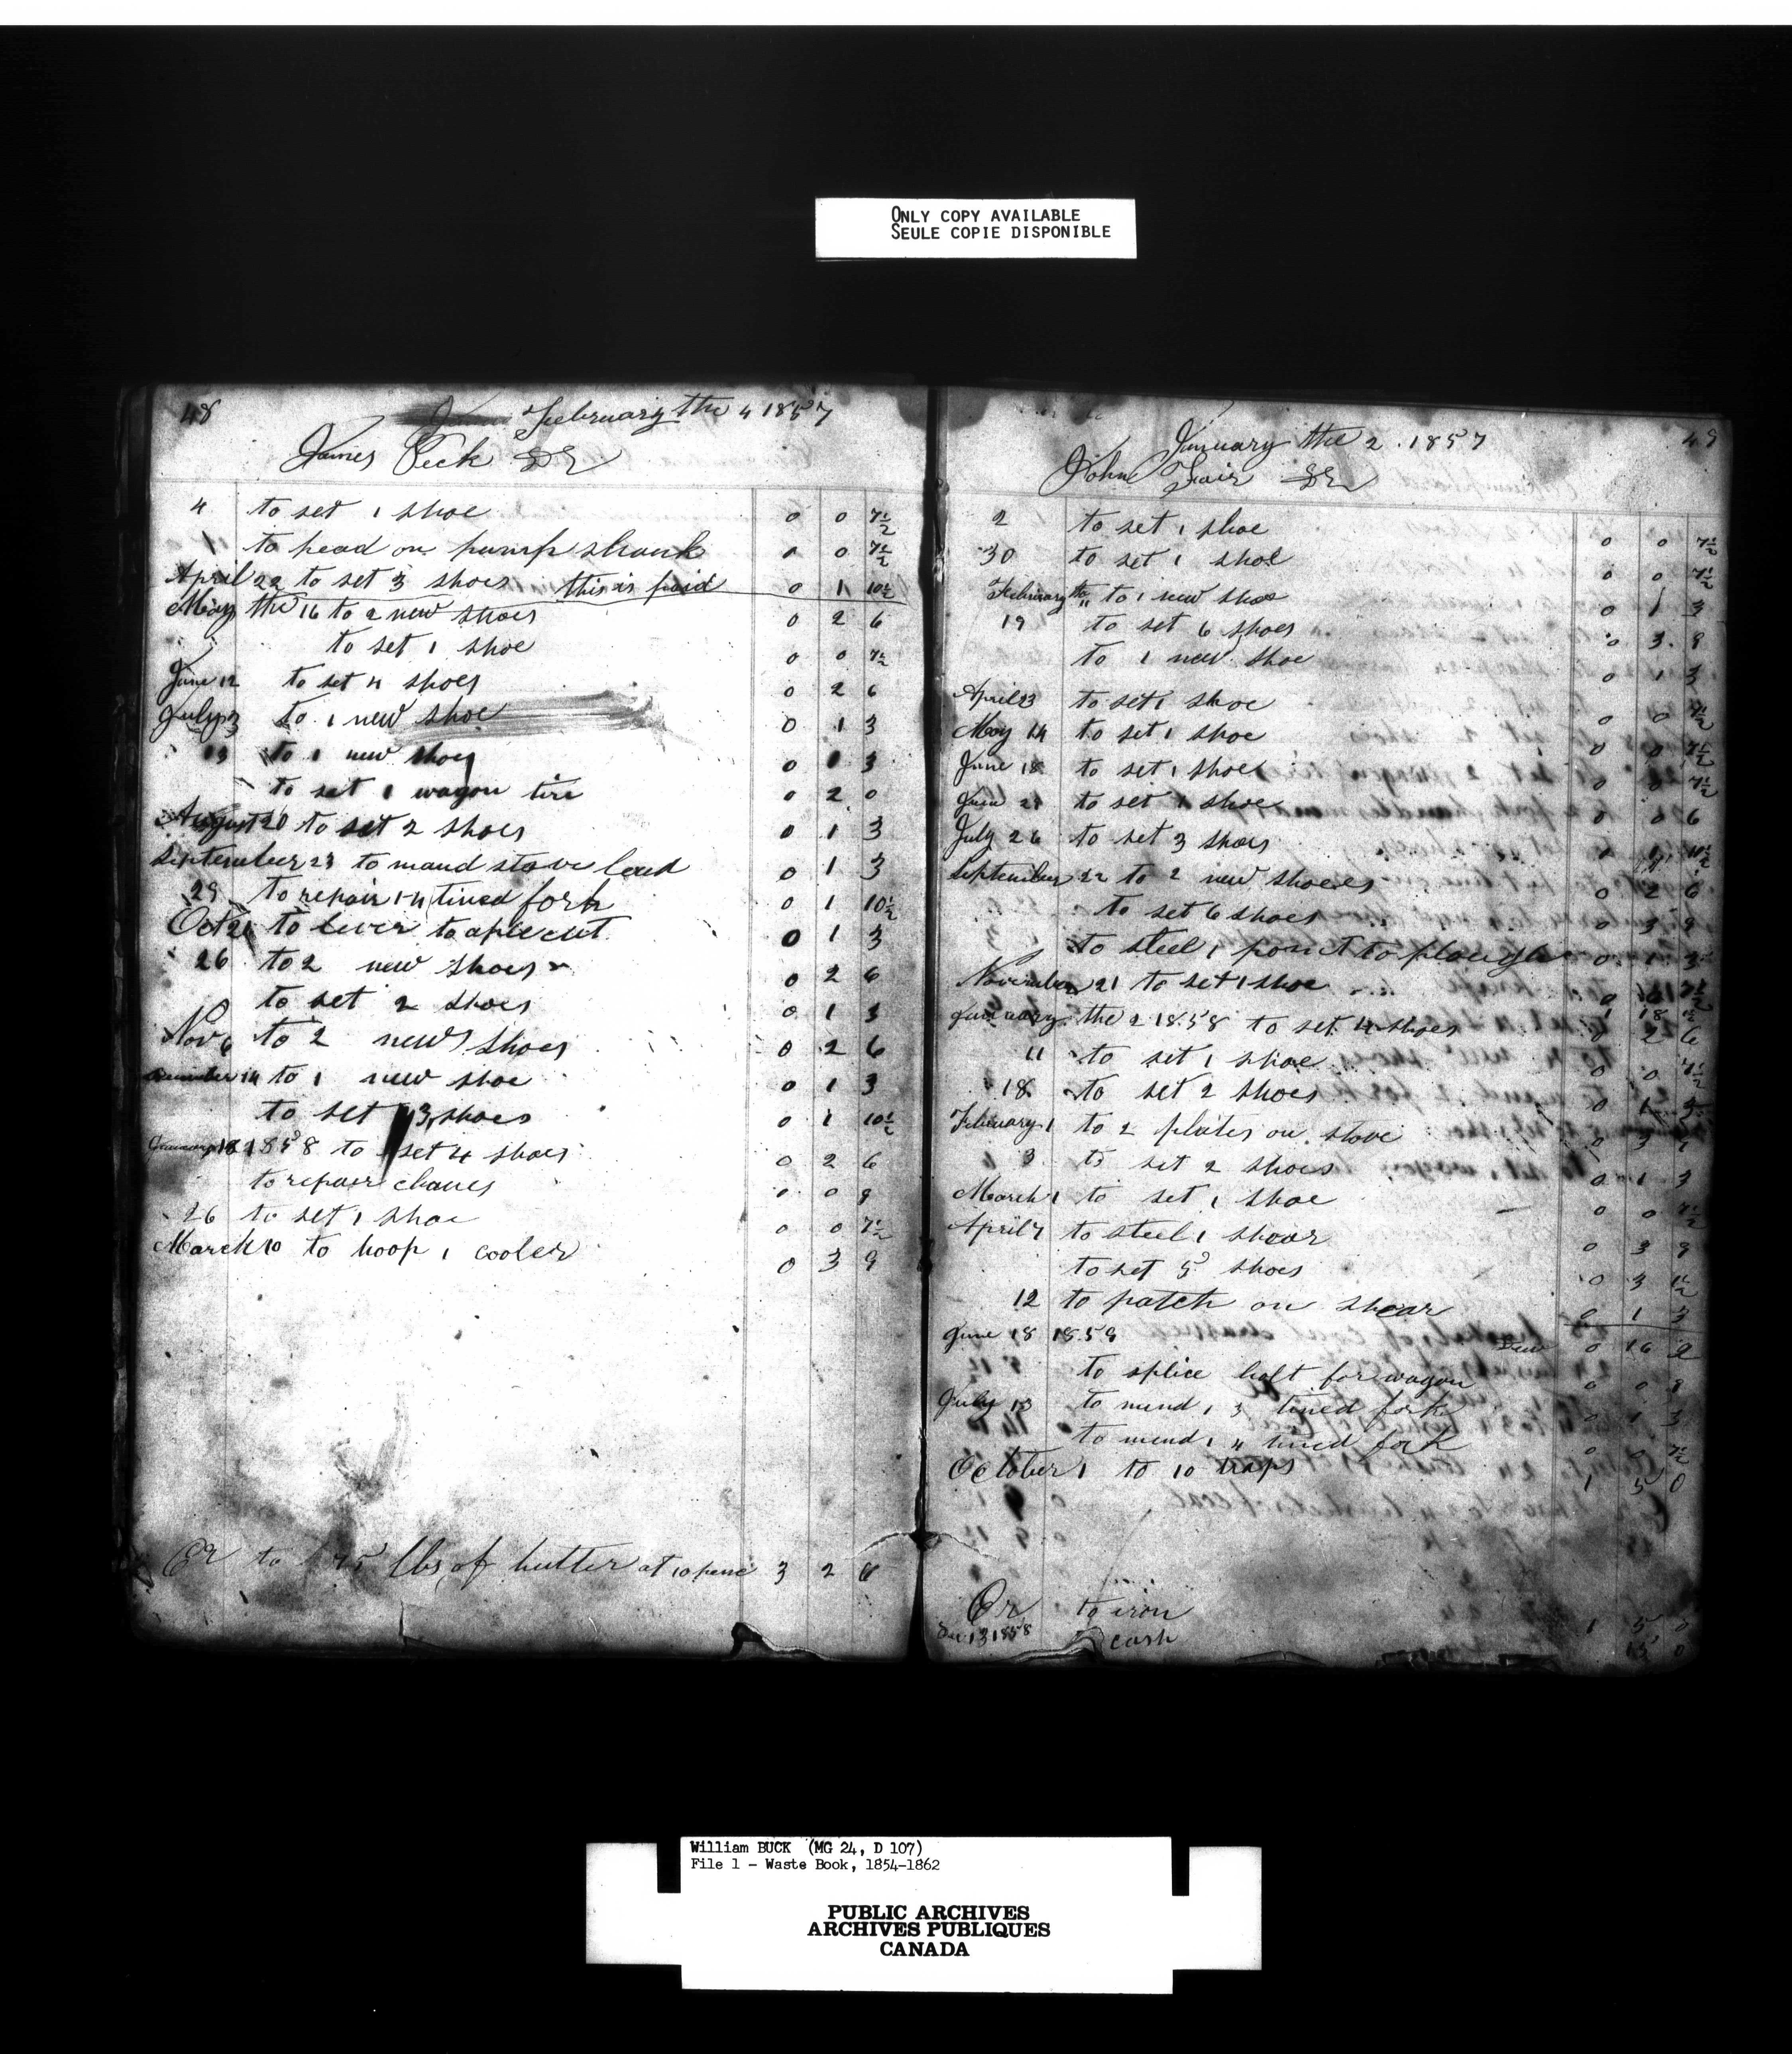 ONLY COPY AVAILABLE
SEULE COPIE DISPONIBLE
48
February the 4 1857
James Peck Dr
4 to set 1 shoe 0 0 7½
to head on pump shank 0 0 7½
April 22 to set 3 shoes this is paid 0 1 10½
May the 16 to 2 new shoes 0 2 6
to set 1 shoe 0 0 7½
June 12 to set 4 shoes 0 2 6
July 3 to 1 new shoe 0 1 3
13 to 1 new shoe 0 1 3
to set 1 wagon tire 0 2 0
August 20 to set 2 shoes 0 1 3
September 23 to mand stove lead 0 1 3
29 to repair 1 4 tined fork 0 1 10½
Oct 21 to liver to aplecut 0 1 3
26 to 2 new shoes 0 2 6
to set 2 shoes 0 1 3
Nov 6 to 2 new shoes 0 2 6
14 to 1 new shoe 0 1 3
to set 3 shoes 0 1 10½
January 18 1858 to set 4 shoes 0 2 6
to repair 0 0 9
26 to set 1 shoe 0 0 7½
March 10 to hoop 1 cooler 0 3 9
Cr to 75 lbs of butter at 10 penc 3 2 6
49
January the 2 1857
John Fair Dr
2 to set 1 shoe 0 0 7½
30 to set 1 shoe 0 0 7½
February the 11 to 1 new shoe 0 1 3
19 to set 6 shoes 0 3 9
to 1 new shoe 0 1 3
April 23 to set 1 shoe 0 0 7½
May 14 to set 1 shoe 0 0 7½
June 18 to set 1 shoe 0 0 7½
June 21 to set 1 shoe 0 0 6
July 26 to set 3 shoes 0 1 10½
September 22 to 2 new shoes 0 2 6
to set 6 shoes 0 3 9
to steel 1 point to plough 0 1 3
November 21 to set 1 shoe 0 0 7½
1 18
January the 2 1858 to set 4 shoes 0 2 6
11 to set 1 shoe 0 0 7½
18 to set 2 shoes 0 1 3
February 1 to 2 plates on stove 0 3
3 to set 2 shoes 0 1 3
March 1 to set 1 shoe 0 0 7½
April 7 to steel 1 shear 0 3 9
to set 5 shoes 0 3 1½
12 to patch on shear 0 1 3
June 18 1859 0 16
to splice bolt for wagon 0 0 9
July 13 to mend 1 3 tined fork 0 1 3
to mend 1 4 tined fork 0 0 7½
October 1 to 10 traps 1 5 0
Cr to iron 1 5 0
Dec 13 1858 cash 15 0
William BUCK (MG 24, D 107)
File 1 - Waste Book, 1854-1862
PUBLIC ARCHIVES
ARCHIVES PUBLIQUES
CANADA